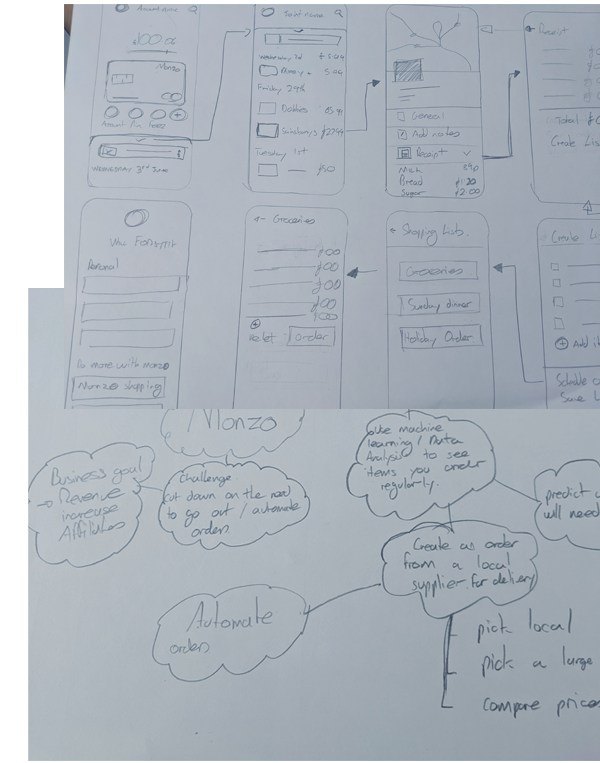 Account name
Monzo
WEDNESDAY 3rd June
Wednesday 3rd
Monzo +
Friday 29th
Sainsburys
Tuesday 1st
General
Add notes
Receipt
Milk 89p
Bread £1.20
Sugar £2.00
← Receipt
Total £0
Create Lis
Personal
Do more with monzo
Monzo shopping
← Groceries
£00
£00
£00
£00
£00
order
← Shopping Lists.
Groceries
Sunday dinner
Holiday Order
Create Li
Add it
Save L
Monzo
Business goal
→ Revenue
increase
Affiliates
Challenge
Cut down on the need
to go out / automate
orders.
Use machine
learning / Data
Analysis to see
items you order
regularly.
predict
will need
Create an order
from a local
supplier for delivery
Automate
orders
pick local
pick a large
compare prices